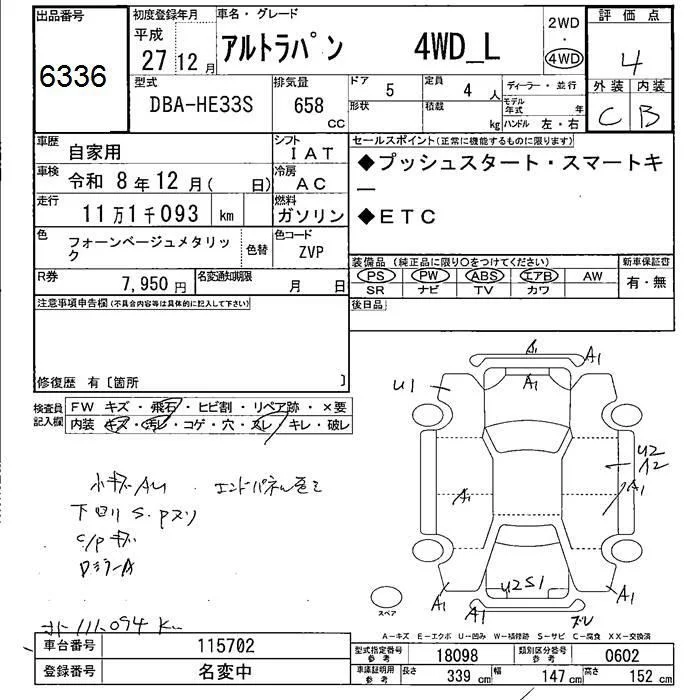 出品番号
6336
初度登録年月
平成
27 12 月
車名・グレード
アルトラパン 4WD_L
2WD
・
4WD
評価点
4
外装 内装
C B
型式
DBA-HE33S
排気量
658 CC
ドア 5
定員 4 人
形状
積載 kg
ディーラー・並行
モデル年式 年
ハンドル 左・右
車歴 自家用
シフト IAT
車検 令和 8年12月( 日)
冷房 AC
走行 11万1千093 km
燃料 ガソリン
色 フォーンベージュメタリック
色替
色コード ZVP
R券 7,950 円
名変通知期限 月 日
セールスポイント(正常に機能するものに限ります)
◆プッシュスタート・スマートキー
◆ETC
装備品(純正品に限り○をつけてください)
PS PW ABS エアB AW
SR ナビ TV カワ
新車保証書
有・無
後日品
注意事項申告欄(不具合内容等は具体的に記入して下さい)
修復歴 有〔箇所 〕
検査員記入欄
FW キズ・飛石・ヒビ割・リペア跡・×要
内装 キズ・汚レ・コゲ・穴・スレ・キレ・破レ
小キズAU エンドパネル
下回りS.Pスリ
C/Pキズ
111,094 Km
A1
A1
A1
U1
U2
A2
A1
A1
U2S1
A1
A1
A1
スペア
A-キズ E-エクボ U-凹み W-補修跡 S-サビ C-腐食 XX-交換済
車台番号 115702
登録番号 名変中
型式指定番号 参考 18098
類別区分番号 参考 0602
車庫証明用 参考 長さ 339 cm 幅 147 cm 高さ 152 cm